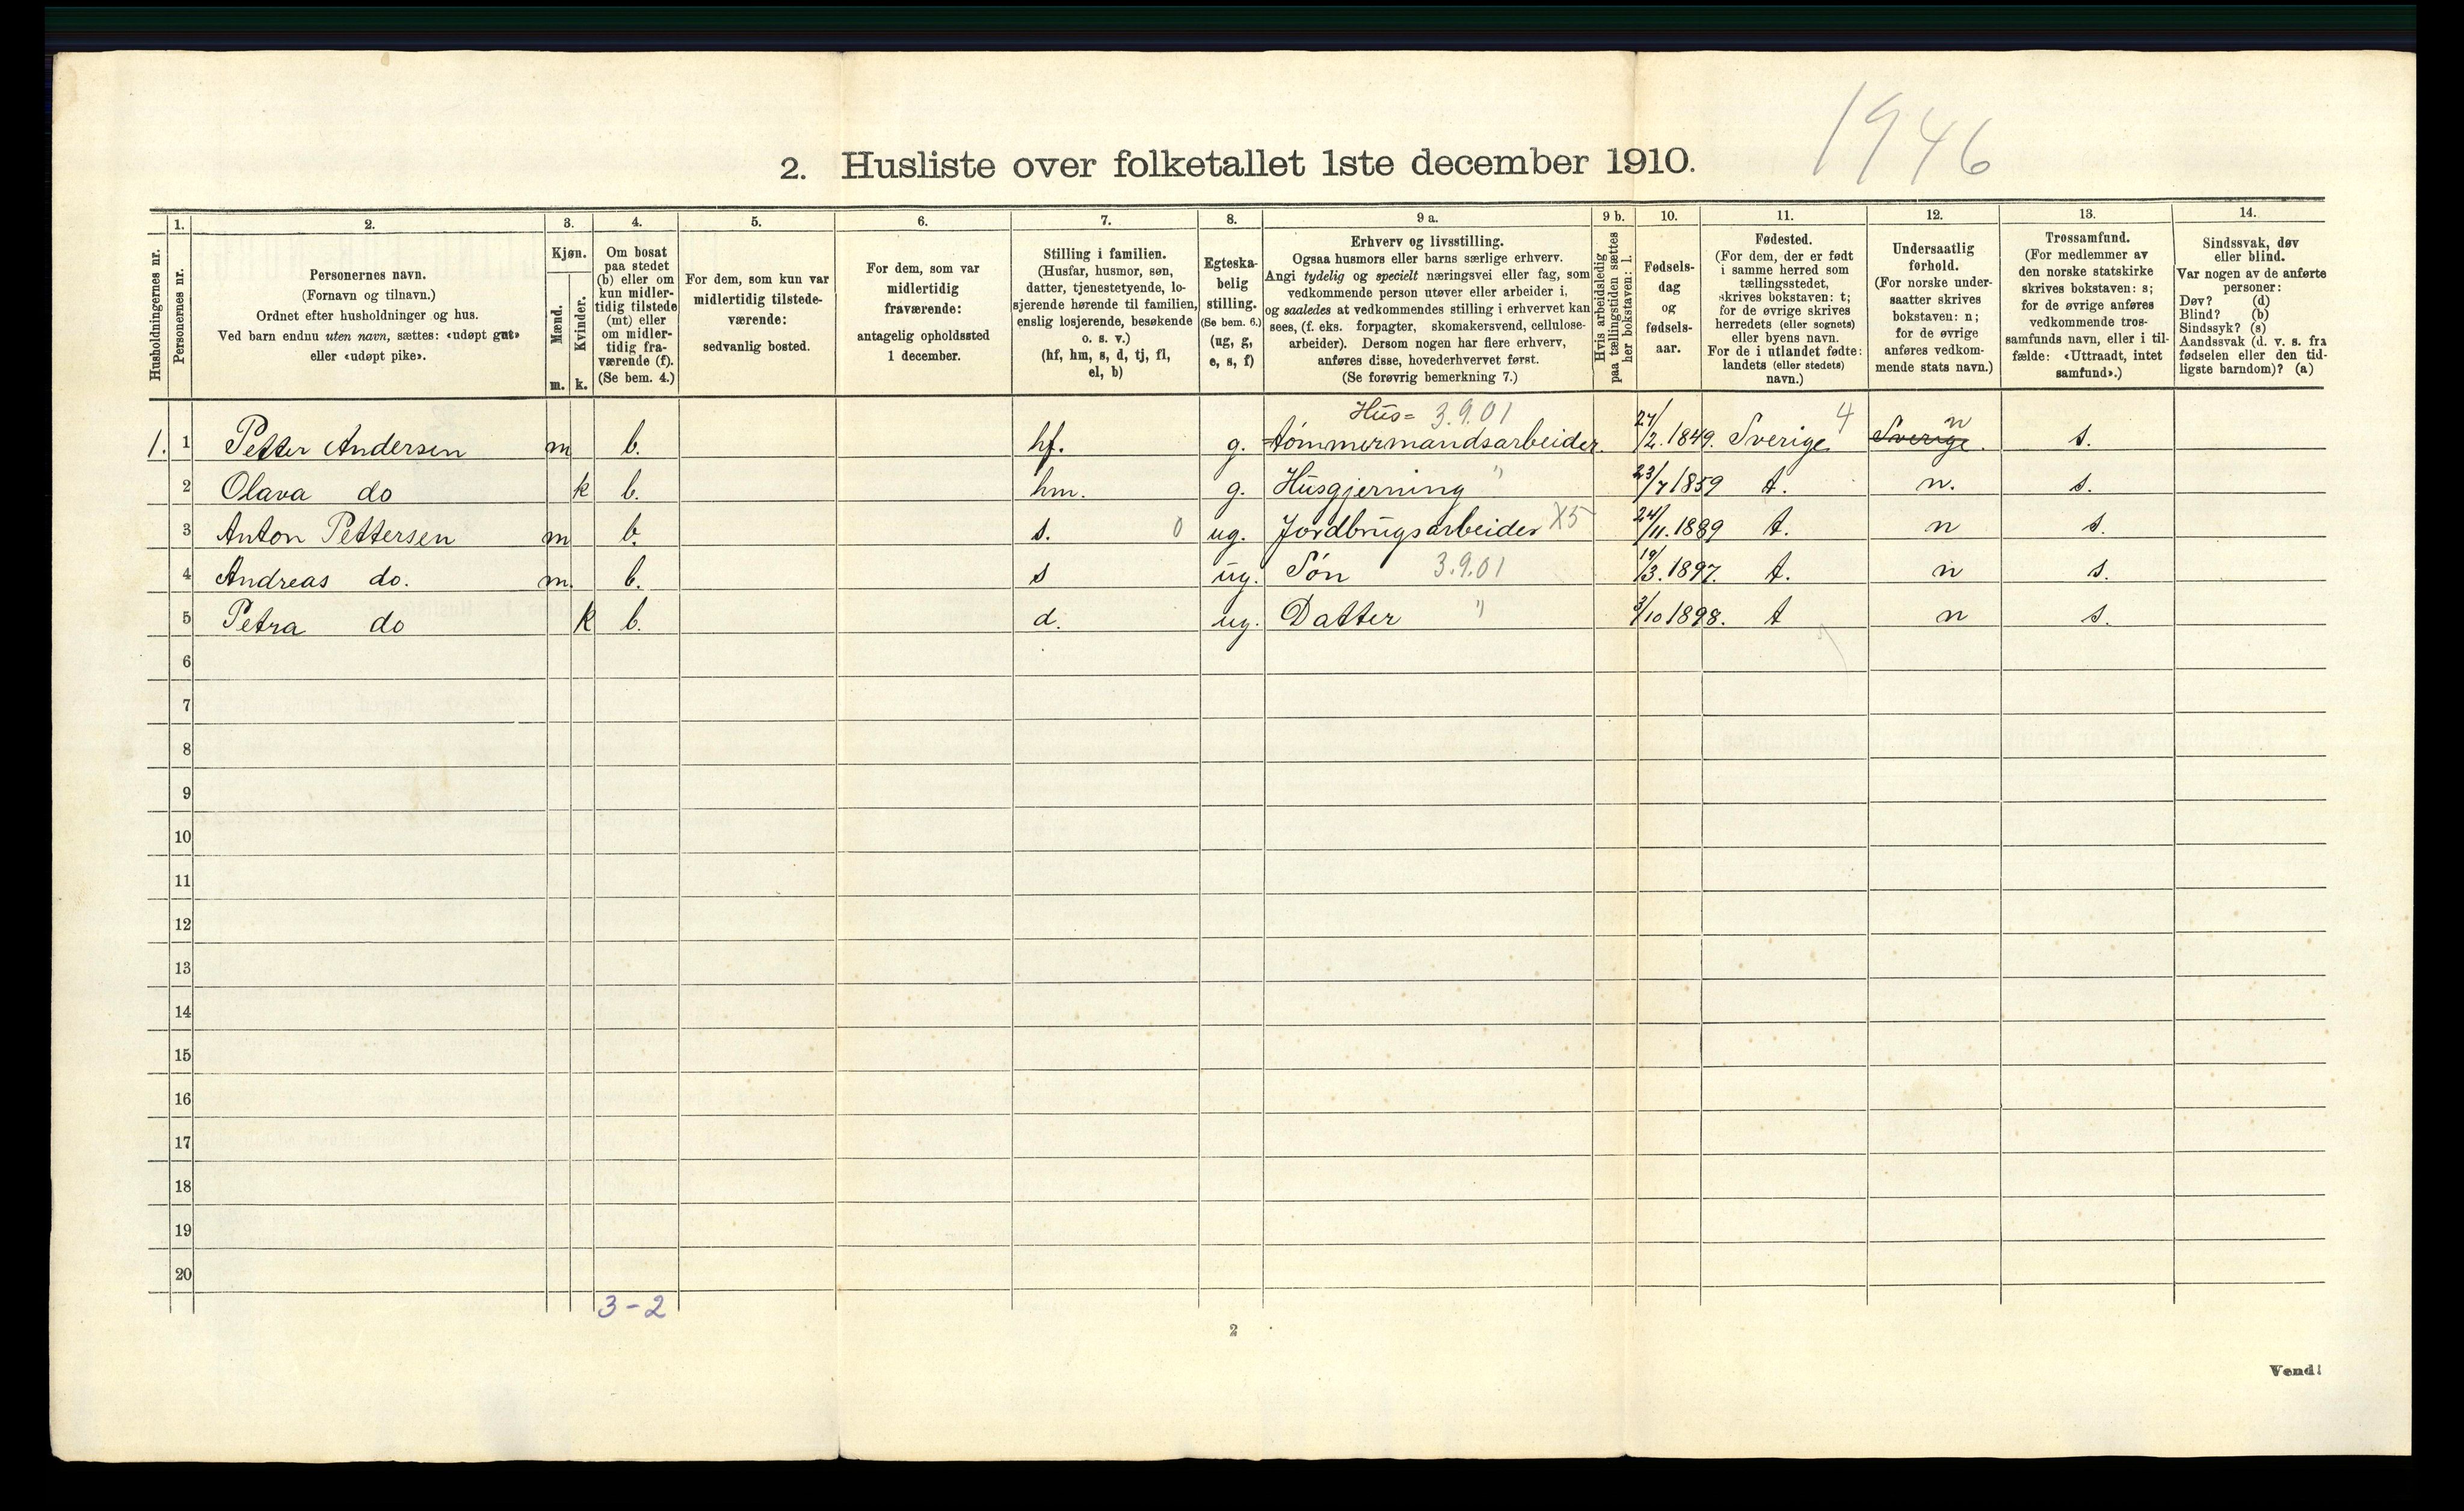 1946
2. Husliste over folketallet 1ste december 1910.
Husholdningernes nr.
1.
Personernes nr.
2.
Personernes navn.
(Fornavn og tilnavn.)
Ordnet efter husholdninger og hus.
Ved barn endnu uten navn, sættes: «udøpt gut»
eller «udøpt pike».
3.
Kjøn.
Mænd.
Kvinder.
m. k.
4.
Om bosat
paa stedet
(b) eller om
kun midler-
tidig tilstede
(mt) eller
om midler-
tidig fra-
værende (f).
(Se bem. 4.)
5.
For dem, som kun var
midlertidig tilstede-
værende:
sedvanlig bosted.
6.
For dem, som var
midlertidig
fraværende:
antagelig opholdssted
1 december.
7.
Stilling i familien.
(Husfar, husmor, søn,
datter, tjenestetyende, lo-
sjerende hørende til familien,
enslig losjerende, besøkende
o. s. v.)
(hf, hm, s, d, tj, fl,
el, b)
8.
Egteska-
belig
stilling.
(Se bem. 6.)
(ug, g,
e, s, f)
9 a.
Erhverv og livsstilling.
Ogsaa husmors eller barns særlige erhverv.
Angi tydelig og specielt næringsvei eller fag, som
vedkommende person utøver eller arbeider i,
og saaledes at vedkommendes stilling i erhvervet kan
sees, (f. eks. forpagter, skomakersvend, cellulose-
arbeider). Dersom nogen har flere erhverv,
anføres disse, hovederhvervet først.
(Se forøvrig bemerkning 7.)
9 b.
Hvis arbeidsledig
paa tællingstiden sættes
her bokstaven: l.
10.
Fødsels-
dag
og
fødsels-
aar.
11.
Fødested.
(For dem, der er født
i samme herred som
tællingsstedet,
skrives bokstaven: t;
for de øvrige skrives
herredets (eller sognets)
eller byens navn.
For de i utlandet fødte:
landets (eller stedets)
navn.)
12.
Undersaatlig
forhold.
(For norske under-
saatter skrives
bokstaven: n;
for de øvrige
anføres vedkom-
mende stats navn.)
13.
Trossamfund.
(For medlemmer av
den norske statskirke
skrives bokstaven: s;
for de øvrige anføres
vedkommende tros-
samfunds navn, eller i til-
fælde: «Uttraadt, intet
samfund».)
14.
Sindssvak, døv
eller blind.
Var nogen av de anførte
personer:
Døv? (d)
Blind? (b)
Sindssyk? (s)
Aandssvak (d. v. s. fra
fødselen eller den tid-
ligste barndom)? (a)
Hus= 3.9.01 4 n
1. 1 Petter Andersen m b. hf. g. tømmermandsarbeider. 27/2. 1849. Sverige Sverige. s.
2 Olava do k b. hm. g. Husgjerning " 23/7 1859 t. n. s.
3 Anton Pettersen m b. s. 0 ug. Jordbrugsarbeider X5 24/11. 1889 t. n s.
4 Andreas do. m. b. s ug. Søn 3.9.01 19/3. 1897. t. n s.
5 Petra do k b. d. ug. Datter " 3/10 1898. t n s.
6
7
8
9
10
11
12
13
14
15
16
17
18
19
20
3-2
2
Vend!